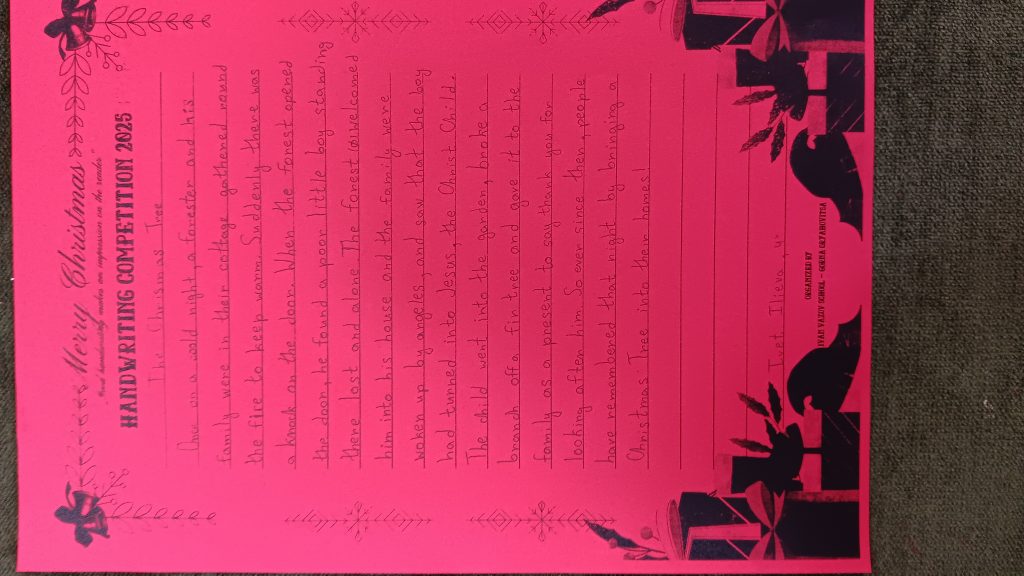 Merry Christmas
"Good handwriting makes an impression on the reader"
HANDWRITING COMPETITION 2025
The Chrismas Tree
Once on a wold night, a forester and his
family were in their cottage gathered round
the fire to keep warm. Suddenly there was
a knock on the door. When the forest opened
the door, he found a poor little boy standing
there lost and alone. The forest welcomed
him into his house and the family were
woken up by angeles, and saw that the boy
had turned into Jesus, the Christ Child.
The child went into the garden, broke a
branch off a fir tree and gave it to the
family as a present to say thank you for
looking after him. So ever since then, people
have remembered that night by bringing a
Christmas Tree into their homes!
Ivet Ilieva, 4
ORGANIZED BY
IVAN VAZOV SCHOOL - GORNA ORYAHOVITSA